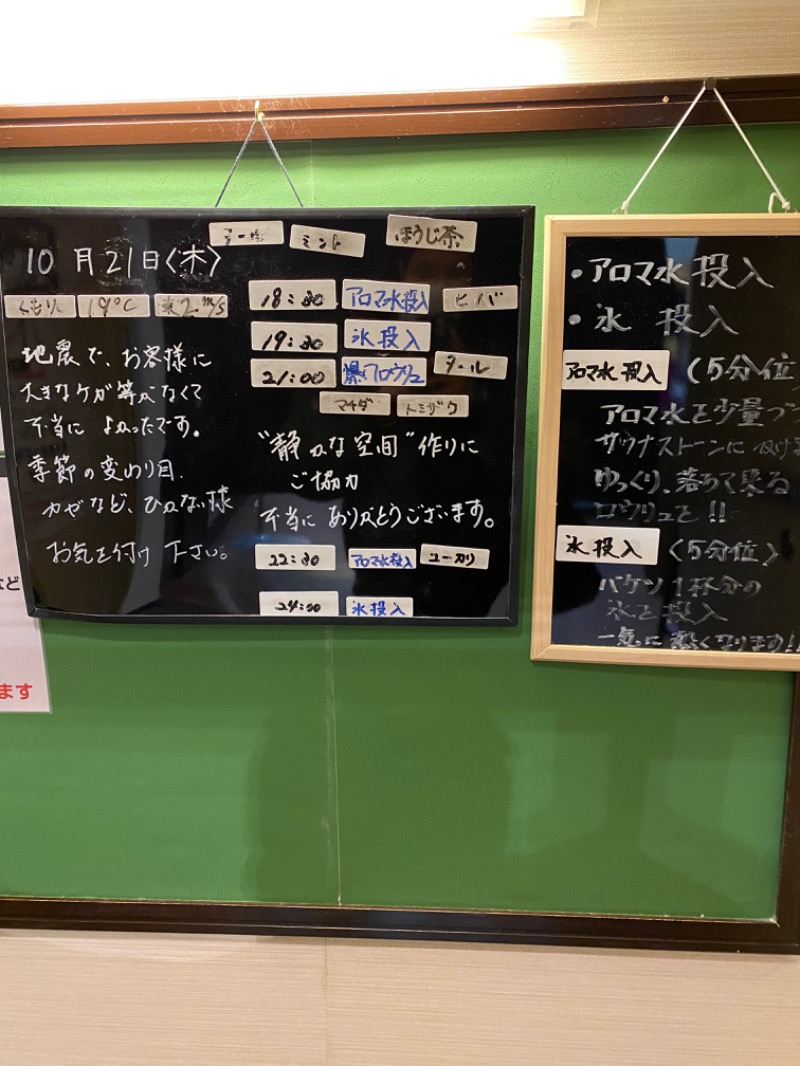 ミント
ほうじ茶
10月21日〈木〉
くもり 19℃ 東2m/s
地震で、お客様に
大きなケガ等がなくて
本当によかったです。
季節の変わり目、
カゼなど、ひかない様
お気を付け下さい。
18:30 アロマ水投入 ヒバ
19:30 氷投入
21:00 爆アロウリュ タール
マチダ トミザワ
"静かな空間"作りに
ご協力
本当にありがとうございます。
22:30 アロマ水投入 ユーカリ
24:00 氷投入
・アロマ水投入
・氷 投入
アロマ水投入 (5分位)
アロマ水を少量づつ
サウナストーンに
ゆっくり、落ちて来る
ロウリュを!!
氷投入 〈5分位〉
バケツ1杯分の
氷を投入
一気に熱くなります!!
など
ます